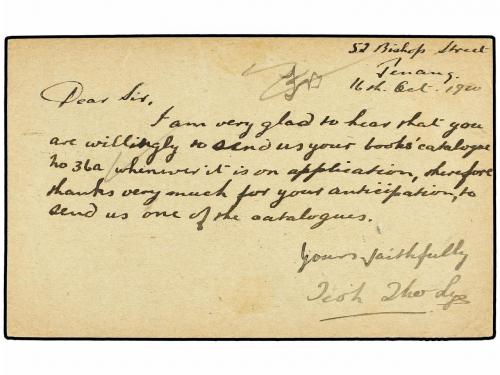 52 Bishop Street
Penang.
16th. Oct. 1920
Dear Sir,
I am very glad to hear that you
are willingly to send us your books' catalogue
No 36a whenever it is on application, therefore
thanks very much for your anticipation, to
send us one of the catalogues.
Yours faithfully
Teoh